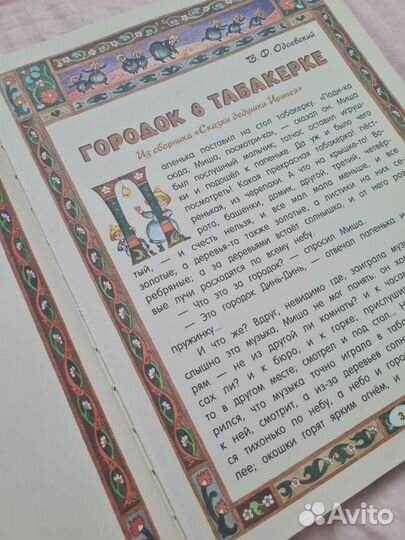 В. Ф. Одоевский
ГОРОДОК в ТАБАКЕРКЕ
Из сборника «Сказки дедушки Иринея»
Папенька поставил на стол табакерку. «Поди-ка
сюда, Миша, посмотри-ка», — сказал он. Миша
был послушный мальчик; тотчас оставил игруш-
ки и подошёл к папеньке. Да уж и было чего
посмотреть! Какая прекрасная табакерка! пёст-
ренькая, из черепахи. А что на крышке-то! Во-
рота, башенки, домик, другой, третий, четвёр-
тый, — и счесть нельзя, и все мал мала меньше, и все
золотые; а деревья-то также золотые, а листики на них се-
ребряные; а за деревьями встаёт солнышко, и от него розо-
вые лучи расходятся по всему небу.
— Что это за городок? — спросил Миша.
— Это городок Динь-Динь, — отвечал папенька и
пружинку...
И что же? Вдруг, невидимо где, заиграла музы
слышна эта музыка, Миша не мог понять: он хо
рям — не из другой ли комнаты? и к часа
сах ли? и к бюро, и к горке; прислуши
то в другом месте; смотрел и под стол...
рился, что музыка точно играла в табе
к ней, смотрит, а из-за деревьев солн
ся тихонько по небу, а небо и город
лее; окошки горят ярким огнём, и
3
Avito